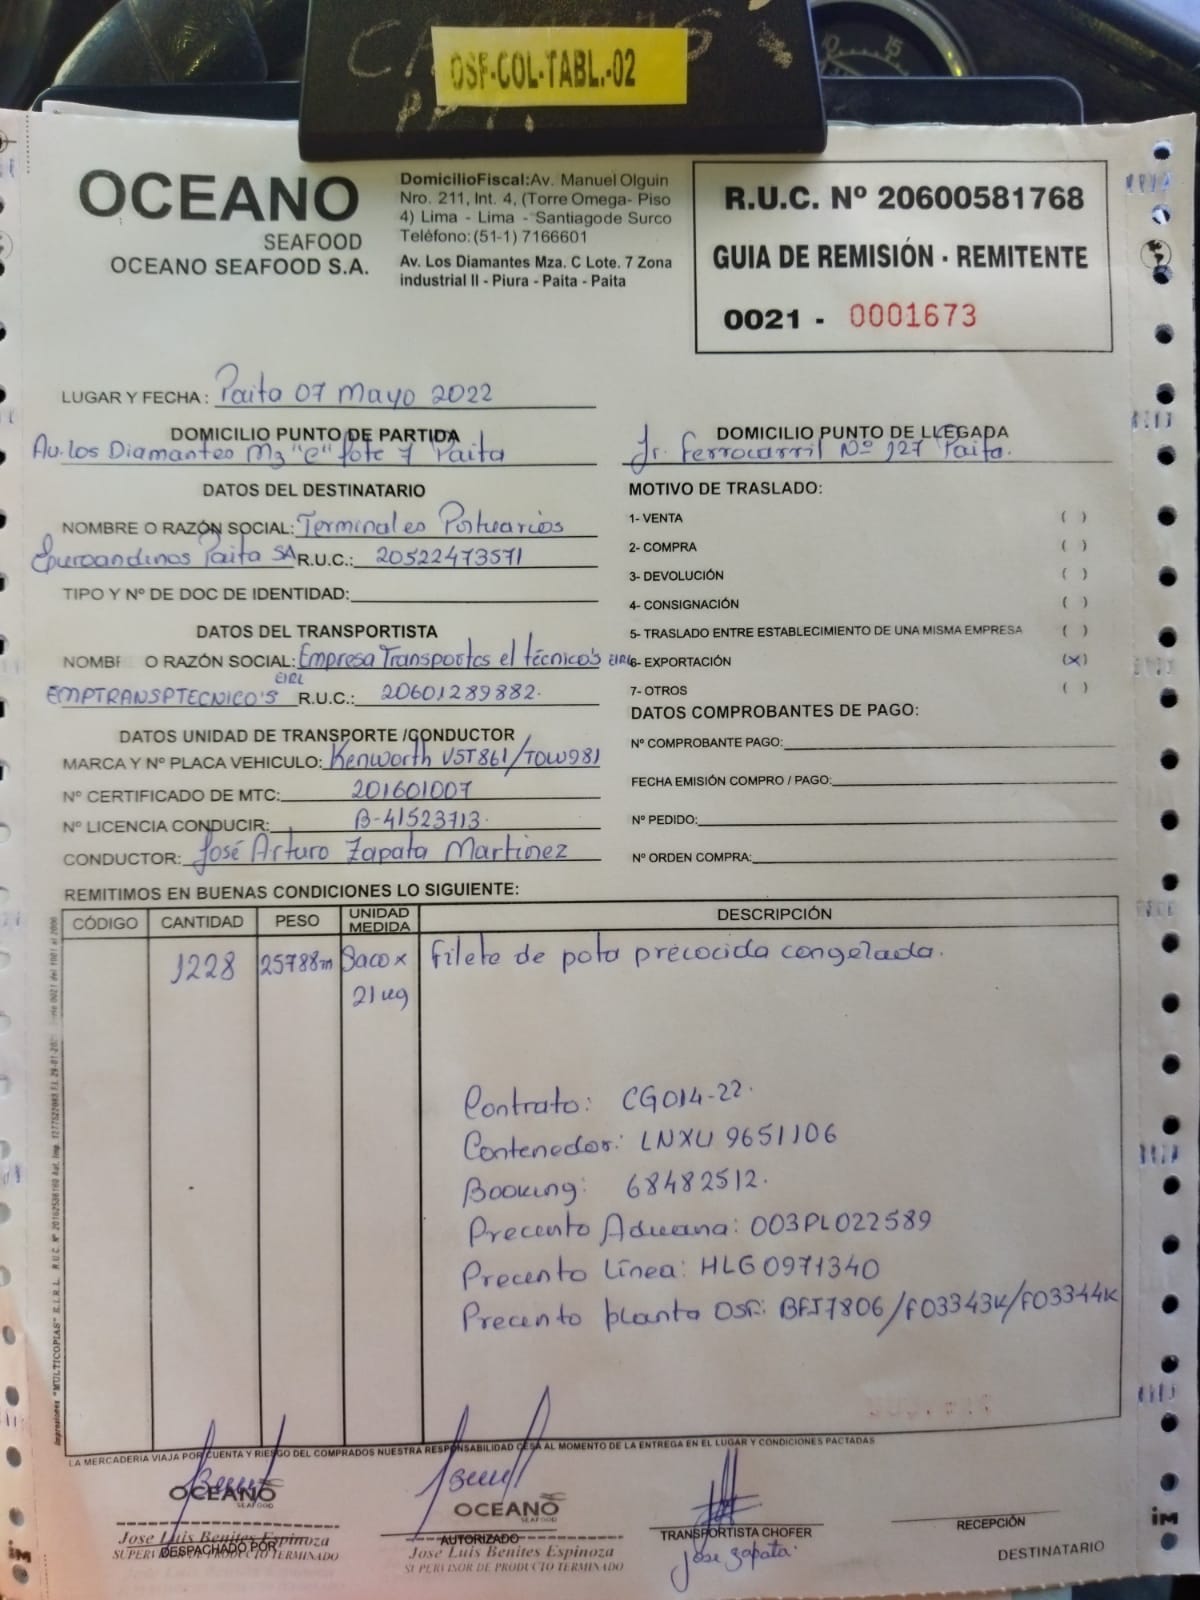 OSF-COL-TABL.-02
OCEANO
SEAFOOD
OCEANO SEAFOOD S.A.
DomicilioFiscal:Av. Manuel Olguin
Nro. 211, Int. 4, (Torre Omega- Piso
4) Lima - Lima - Santiagode Surco
Teléfono:(51-1) 7166601
Av. Los Diamantes Mza. C Lote. 7 Zona
industrial II - Piura - Paita - Paita
R.U.C. Nº 20600581768
GUIA DE REMISIÓN - REMITENTE
0021 - 0001673
LUGAR Y FECHA : Paita 07 Mayo 2022
DOMICILIO PUNTO DE PARTIDA
Av. los Diamantes Mz "C" lote 7 Paita
DOMICILIO PUNTO DE LLEGADA
Jr. Ferrocarril Nº 127 Paita.
DATOS DEL DESTINATARIO
NOMBRE O RAZÓN SOCIAL: Terminales Portuarios
Euroandinos Paita SA R.U.C.: 20522473571
TIPO Y Nº DE DOC DE IDENTIDAD:
DATOS DEL TRANSPORTISTA
NOMB O RAZÓN SOCIAL: Empresa Transportes el técnico's EIRL
EMPTRANSPTECNICO'S EIRL R.U.C.: 20601289882.
DATOS UNIDAD DE TRANSPORTE /CONDUCTOR
MARCA Y Nº PLACA VEHICULO: Kenworth V5T861/TOW981
Nº CERTIFICADO DE MTC: 201601007
Nº LICENCIA CONDUCIR: B-41523713.
CONDUCTOR: José Arturo Zapata Martinez
MOTIVO DE TRASLADO:
1- VENTA ( )
2- COMPRA ( )
3- DEVOLUCIÓN ( )
4- CONSIGNACIÓN ( )
5- TRASLADO ENTRE ESTABLECIMIENTO DE UNA MISMA EMPRESA ( )
6- EXPORTACIÓN (x)
7- OTROS ( )
DATOS COMPROBANTES DE PAGO:
Nº COMPROBANTE PAGO:
FECHA EMISIÓN COMPRO / PAGO:
Nº PEDIDO:
Nº ORDEN COMPRA:
REMITIMOS EN BUENAS CONDICIONES LO SIGUIENTE:
CÓDIGO CANTIDAD PESO UNIDAD MEDIDA DESCRIPCIÓN
1228 25788 Saco x Filete de pota precocida congelada.
21 kg
Contrato: CG014-22.
Contenedor: LNXU 9651106
Booking: 68482512.
Precento Aduana: 003PL022589
Precento Línea: HLG0971340
Precento planta OSF: BFJ7806/F03343K/F03344K
LA MERCADERIA VIAJA POR CUENTA Y RIESGO DEL COMPRADOS NUESTRA RESPONSABILIDAD CESA AL MOMENTO DE LA ENTREGA EN EL LUGAR Y CONDICIONES PACTADAS
OCEANO
SEAFOOD
Jose Luis Benites Espinoza
DESPACHADO POR
SUPERVISOR DE PRODUCTO TERMINADO
OCEANO
SEAFOOD
AUTORIZADO
Jose Luis Benites Espinoza
SUPERVISOR DE PRODUCTO TERMINADO
TRANSPORTISTA CHOFER
Jose Zapata.
RECEPCIÓN
DESTINATARIO